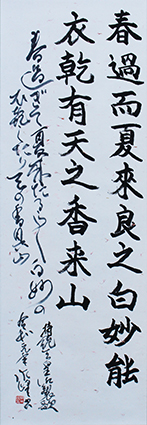 春過而夏來良之白妙能
衣乾有天之香来山
春過ぎて夏来たるらし白妙の
衣乾したり天の香具山
持統天皇御製歌